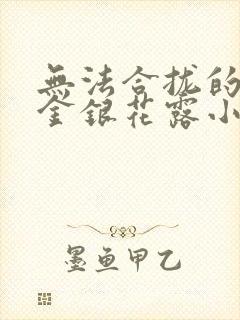 無法合拢的
金銀花露小
墨鱼甲乙